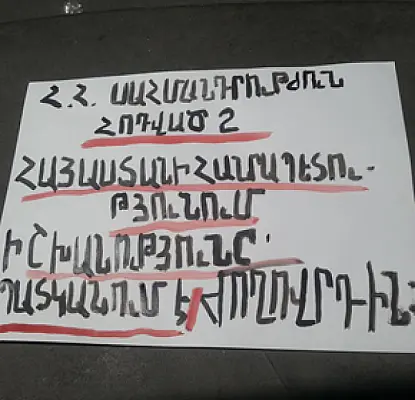 Հ.Հ. ՍԱՀՄԱՆԴՐՈՒԹՅՈՒՆ
ՀՈԴՎԱԾ 2
ՀԱՅԱՍՏԱՆԻ ՀԱՆՐԱՊԵՏՈՒ-
ԹՅՈՒՆՈՒՄ
ԻՇԽԱՆՈՒԹՅՈՒՆԸ
ՊԱՏԿԱՆՈՒՄ Է ԺՈՂՈՎՐԴԻՆ: